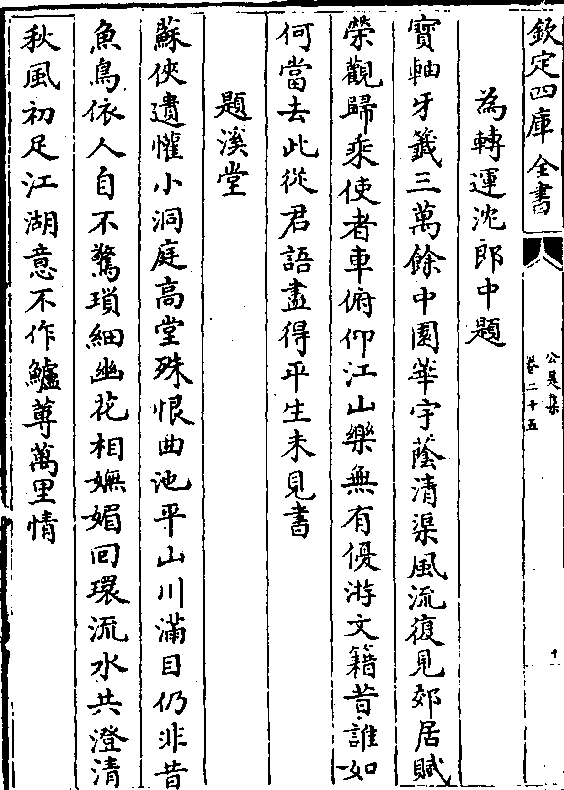 欽定四庫全書
公是集
卷二十五
十
為轉運沈郎中題
寳軸牙籖三萬餘中園華宇蔭清渠風流復見郊居賦
榮觀歸乘使者車俯仰江山樂無有優游文籍昔誰如
何當去此從君語盡得平生未見書
題溪堂
蘇俠遺懽小洞庭高堂殊恨曲池平山川滿目仍非昔
魚鳥依人自不驚瑣細幽花相嫵媚回環流水共澄清
秋風初足江湖意不作鱸蓴萬里情